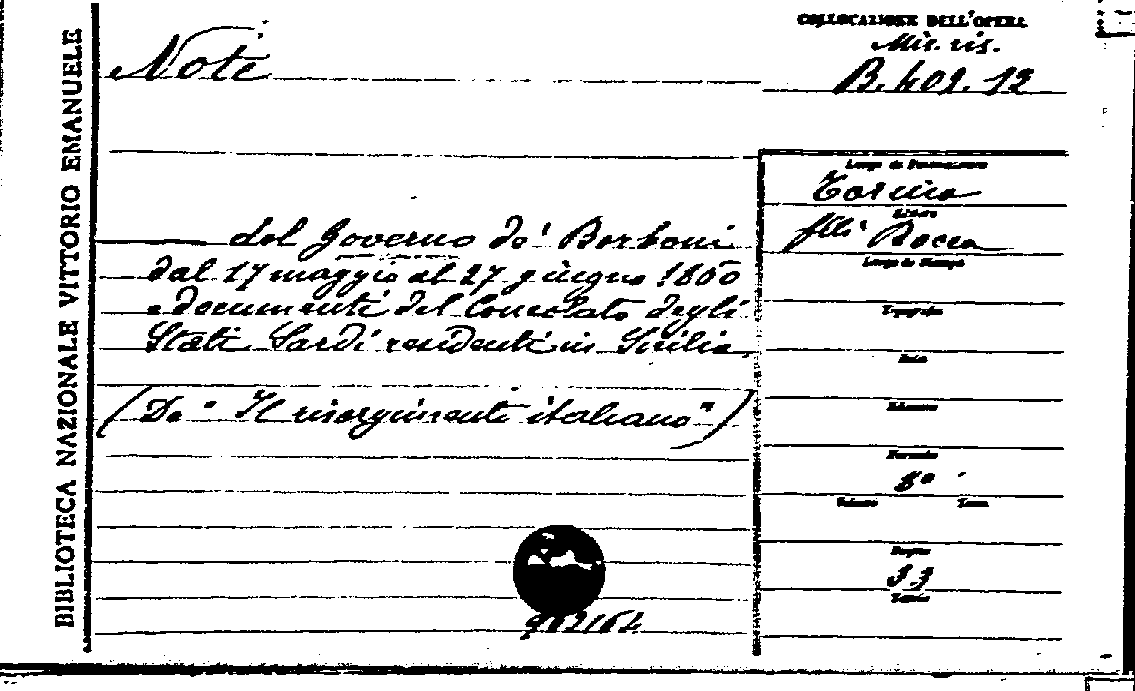 BIBLIOTECA NAZIONALE VITTORIO EMANUELE
Note
COLLOCAZIONE DELL'OPERA
Mis. ris.
B. 409. 12
del Governo de' Borboni
dal 17 maggio al 27 giugno 1860
e documenti del Consolato degli
Stati Sardi residenti in Sicilia.
(Da "Il risorgimento italiano")
Torino
Editore
f.lli Bocca
Luogo di Stampa
Tipografo
Data
Formato
8°
Volume
Tomo
Pagine
33
Tavole